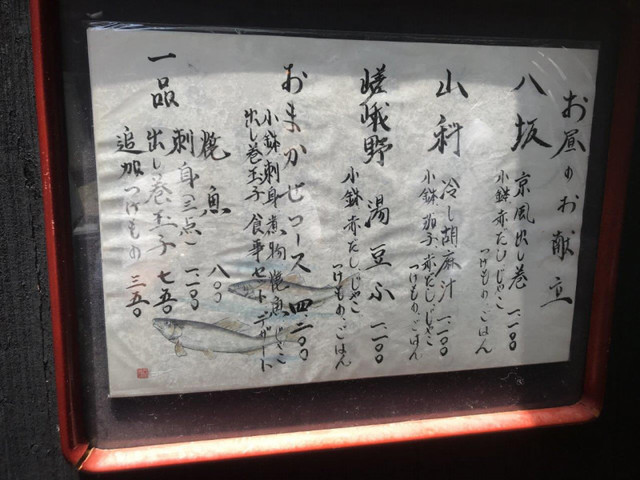 お昼のお献立
八坂 京風出し巻 一、一〇〇
小鉢 赤だし、じゃこ
つけもの、ごはん
山科 冷し胡麻汁 一、一〇〇
小鉢 茄子、赤だし、じゃこ
つけもの、ごはん
嵯峨野 湯豆ふ 一、一〇〇
小鉢 赤だし、じゃこ
つけもの、ごはん
おまかせコース 四、二〇〇
小鉢 刺身 煮物 焼魚 じゃこ
出し巻玉子 食事セット デザート
一品
焼魚 八〇〇
刺身(三点) 一、一〇〇
出し巻玉子 七五〇
追加つけもの 三五〇